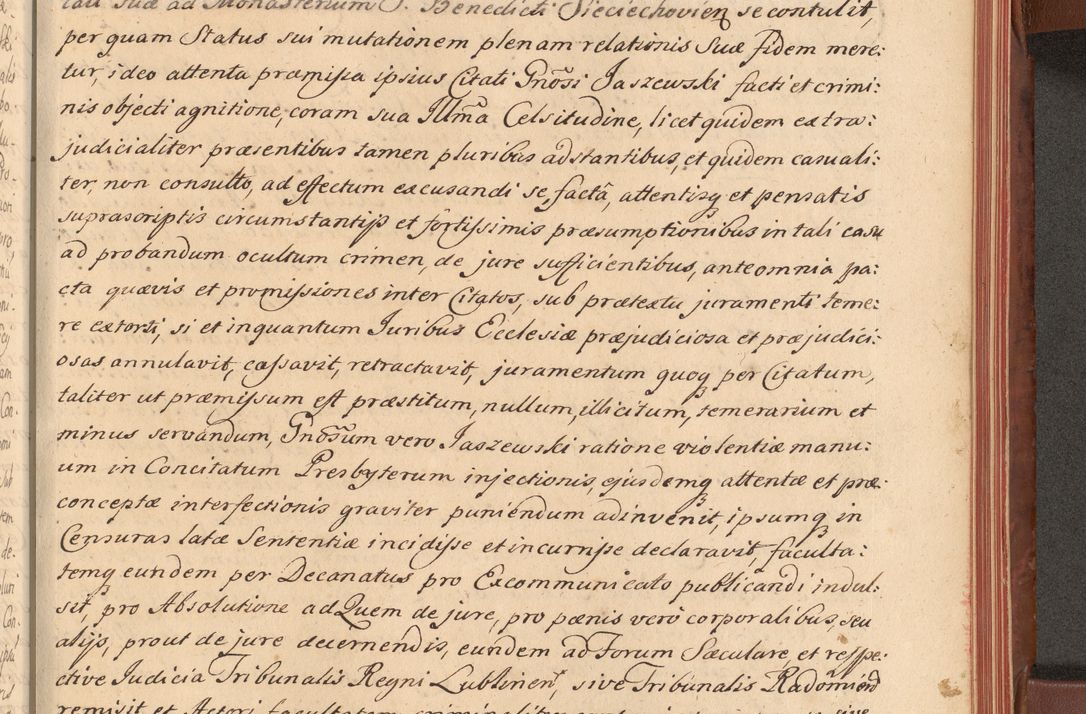 suæ ad Monasterium S. Benedicti Sieciechovien se contulit,
per quam Status sui mutationem plenam relationis Suæ Fidem mere:
tur, ideo attenta præmissa ipsius Citati Gnosi Jaszewski facti et crimi:
nis objecti agnitione, coram sua Illma Celsitudine, licet quidem extra:
judicialiter præsentibus tamen pluribus adstantibus, et quidem casuali:
ter, non consulto, ad effectum excusandi se, facta, attentisq et pensatis
suprascriptis circumstantijs et fortissimis præsumptionibus in tali casu
ad probandum ocultum crimen, de jure sufficientibus, ante omnia pa:
cta quævis et promissiones inter Citatos, sub prætextu juramenti teme:
re extorti, si et inquantum Juribus Ecclesiæ præjudiciosa et præjudici:
osas annulavit, cassavit, retractavit, juramentum quoq per Citatum,
taliter ut præmissum est præstitum, nullum, illicitum, temerarium et
minus servandum, Gnosum vero Jaszewski ratione violentiæ manu:
um in Concitatum Presbyterum injectionis, ejusdemq attentæ et præ:
conceptæ interfectionis graviter puniendum adinvenit, ipsumq in
Censuras latæ Sententiæ incidisse et incurrisse declaravit, faculta:
temq eundem per Decanatus pro Excommunicato publicandi indul:
sit, pro Absolutione ad Quem de jure, pro pænis vero corporalibus, seu
alijs, prout de jure decernendis, eundem ad Forum Sæculare, et respe:
ctive Judicia Tribunalis Regni Lublinen, sive Tribunalis Radomien
remisit et Actori facultatem criminaliter